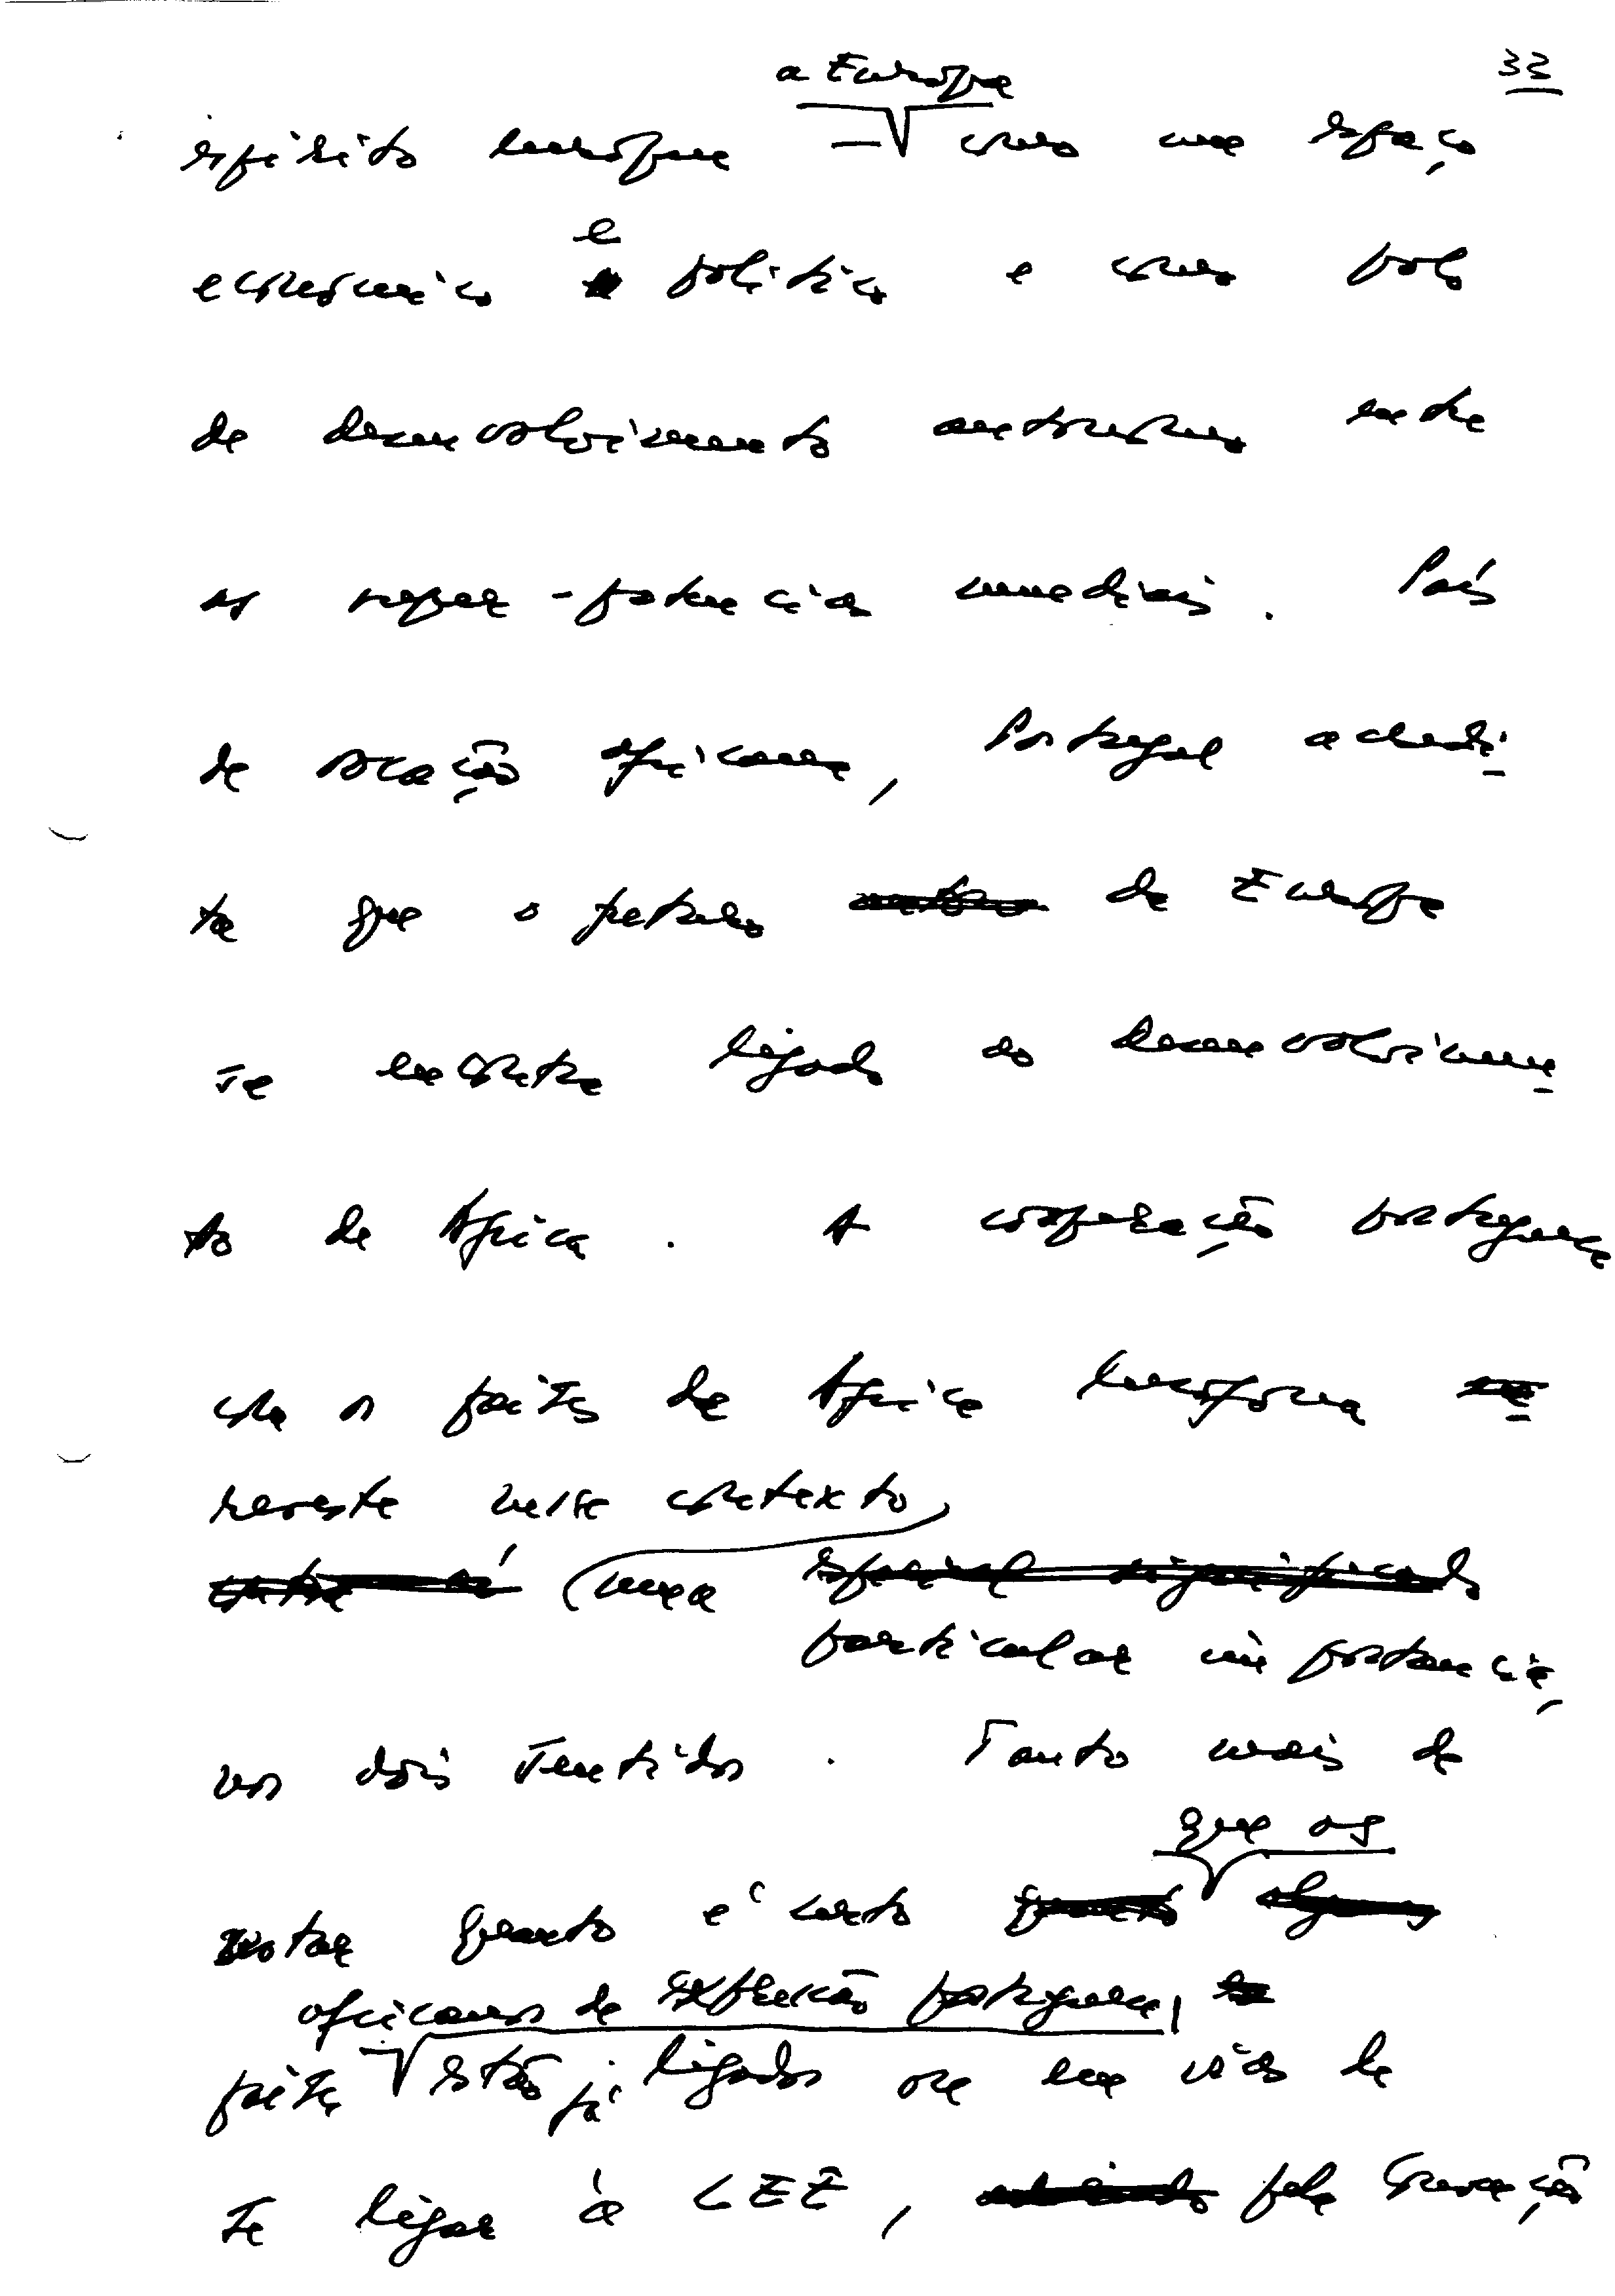 32
a Europa
espírito europeu — como um espaço
e
económico e político e como polo
de desenvolvimento autónomo entre
as super-potências mundiais. País
de vocação africana, Portugal acredi-
ta que o futuro da Europa
se encontra ligado ao desenvolvimen-
to de África. A cooperação portuguesa
com os países de África lusófona
reveste nesse contexto
uma especial significado
particular importância,
nos dois sentidos. Tanto mais de
que os
notar quanto é certo quanto alguns
africanos de expressão portuguesa,
países estão já ligados ou em vias de
se ligar à CEE, pela Convenção